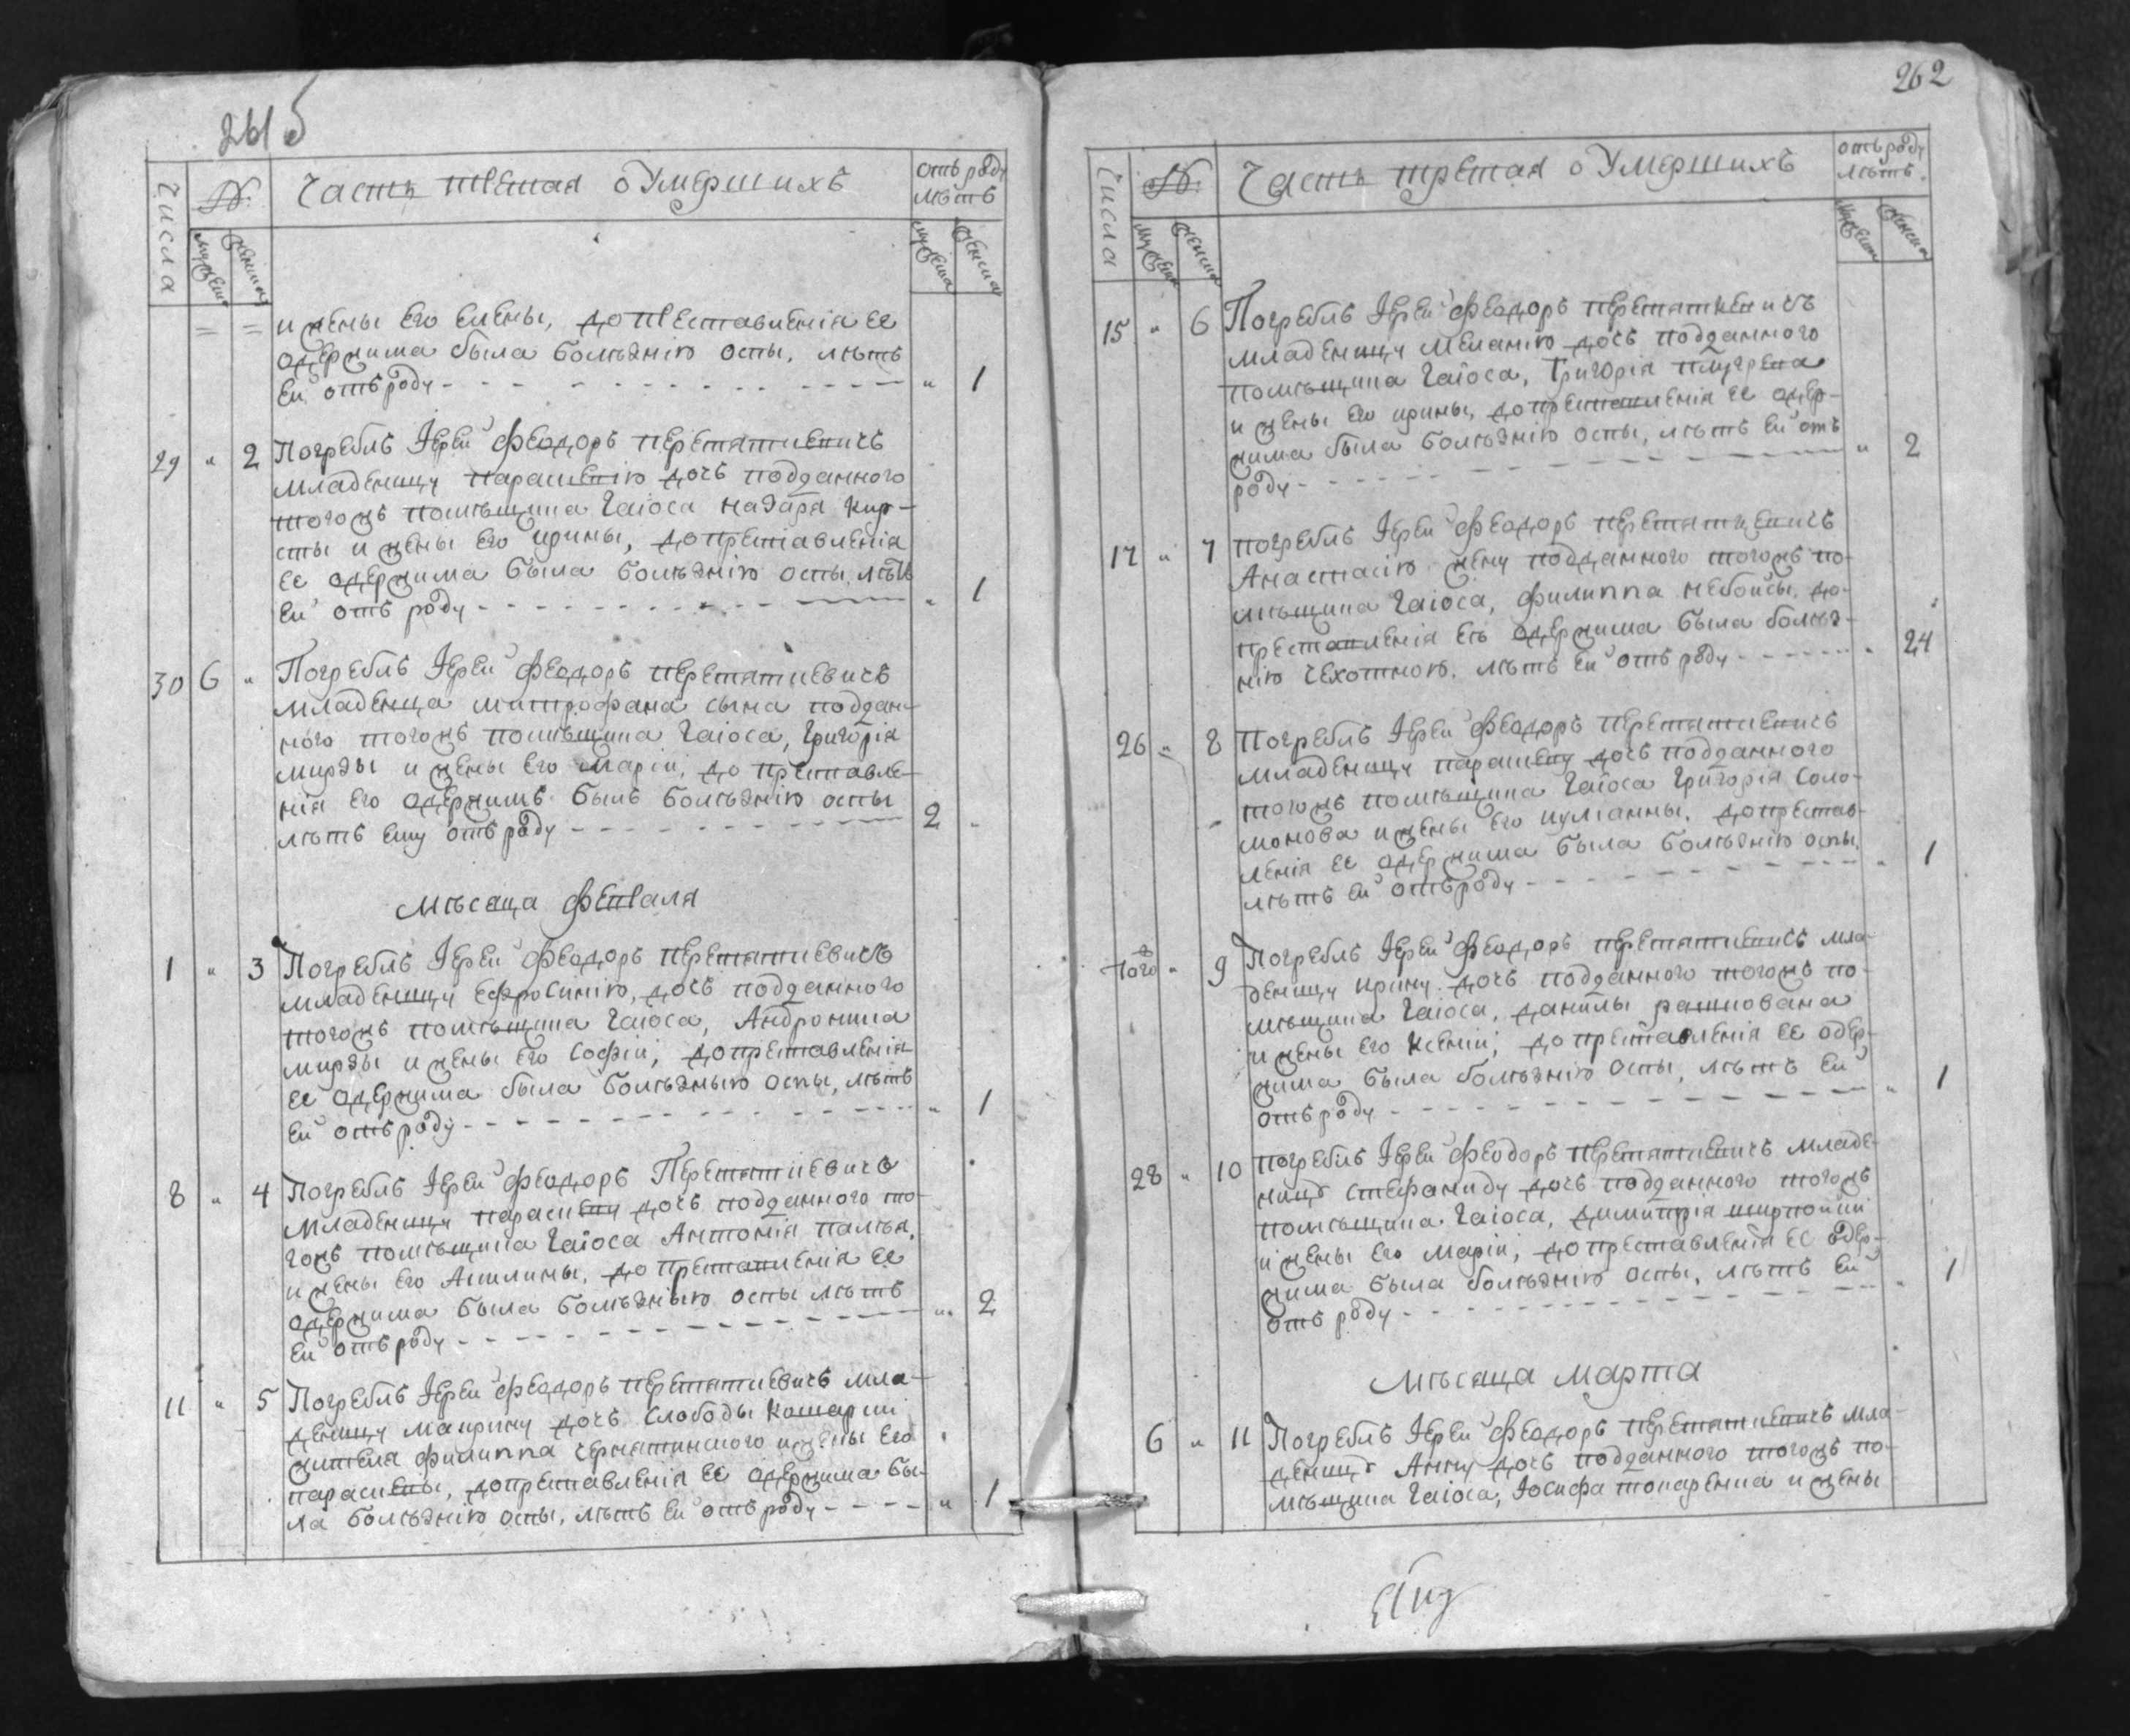 261 б
Числа
№
Часть третая о Умершихъ
отъ роду
лѣтъ
мужеска
женска
мужеска
женска
= = и жены его Елены, до преставленія ее
одержима была болѣзнію оспы, лѣтъ
ей отъ роду - - - " 1
29 " 2 Погребль Іерей Феодоръ Перетяткевичъ
младеницу Параскевію дочь подданного
тогожъ помѣщика Гаіоса Назара Кир-
сты и жены его Ирины, до преставленія
ее одержима была болѣзнію оспы, лѣтъ
ей отъ роду - - - " 1
30 6 " Погребль Іерей Феодоръ Перетяткевичъ
младенца Митрофана сына поддан-
ного тогожъ помѣщика Гаіоса, Григорія
Мирзы и жены его Маріи, до преставле-
нія его одержимъ былъ болѣзнію оспы
лѣтъ ему отъ роду - - - 2 "
Мѣсяца Февраля
1 " 3 Погребль Іерей Феодоръ Перетяткевичъ
младеницу Ефросинію, дочь подданного
тогожъ помѣщика Гаіоса, Андроника
Мирзы и жены его Софіи, до преставленія
ее одержима была болѣзнью оспы, лѣтъ
ей отъ роду - - - " 1
8 " 4 Погребль Іерей Феодоръ Перетяткевичъ
младеницу Параскеву дочь подданного то-
гожъ помѣщика Гаіоса Антонія Палѣя,
и жены его Акилины, до преставленія ее
одержима была болѣзнью оспы лѣтъ
ей отъ роду - - - " 2
11 " 5 Погребль Іерей Феодоръ Перетяткевичъ мла-
деницу Маврину дочь слободы Кошарки
жителя Филиппа Чернятинского и жены его
Параскевы, до преставленія ее одержима бы-
ла болѣзнію оспы, лѣтъ ей отъ роду - - - " 1
262
Числа
№
Часть третая о Умершихъ
отъ роду
лѣтъ
мужеска
женска
мужеска
женска
15 " 6 Погребль Іерей Феодоръ Перетяткевичъ
младеницу Меланію дочь подданного
помѣщика Гаіоса, Григорія
и жены его Ирины, до преставленія ее одер-
жима была болѣзнію оспы, лѣтъ ей отъ
роду - - - " 2
17 " 7 Погребль Іерей Феодоръ Перетяткевичъ
Анастасію жену подданного тогожъ по-
мѣщика Гаіоса, Филиппа Небойсы, до
преставленія еѣ одержима была болѣз-
нію чехотною, лѣтъ ей отъ роду - - - " 24
26 " 8 Погребль Іерей Феодоръ Перетяткевичъ
младеницу Параскеву дочь подданного
тогожъ помѣщика Гаіоса Григорія Соло-
монова и жены его Иулианны, до престав-
ленія ее одержима была болѣзнію оспы,
лѣтъ ей отъ роду - - - " 1
того " 9 Погребль Іерей Феодоръ Перетяткевичъ мла-
деницу Ирину дочь подданного тогожъ по-
мѣщика Гаіоса, Данилы Рашкована
и жены его Ксеніи, до преставленія ее одер-
жима была болѣзнію оспы, лѣтъ ей
отъ роду - - - " 1
28 " 10 Погребль Іерей Феодоръ Перетяткевичъ младе-
ницу Стефаниду дочь подданного тогожъ
помѣщика Гаіоса, Димитрія
и жены его Маріи, до преставленія ее одер-
жима была болѣзнію оспы, лѣтъ ей
отъ роду - - - " 1
Мѣсяца Марта
6 " 11 Погребль Іерей Феодоръ Перетяткевичъ мла-
деницу Анну дочь подданного тогожъ по-
мѣщика Гаіоса, Іосифа Токаренка и жены